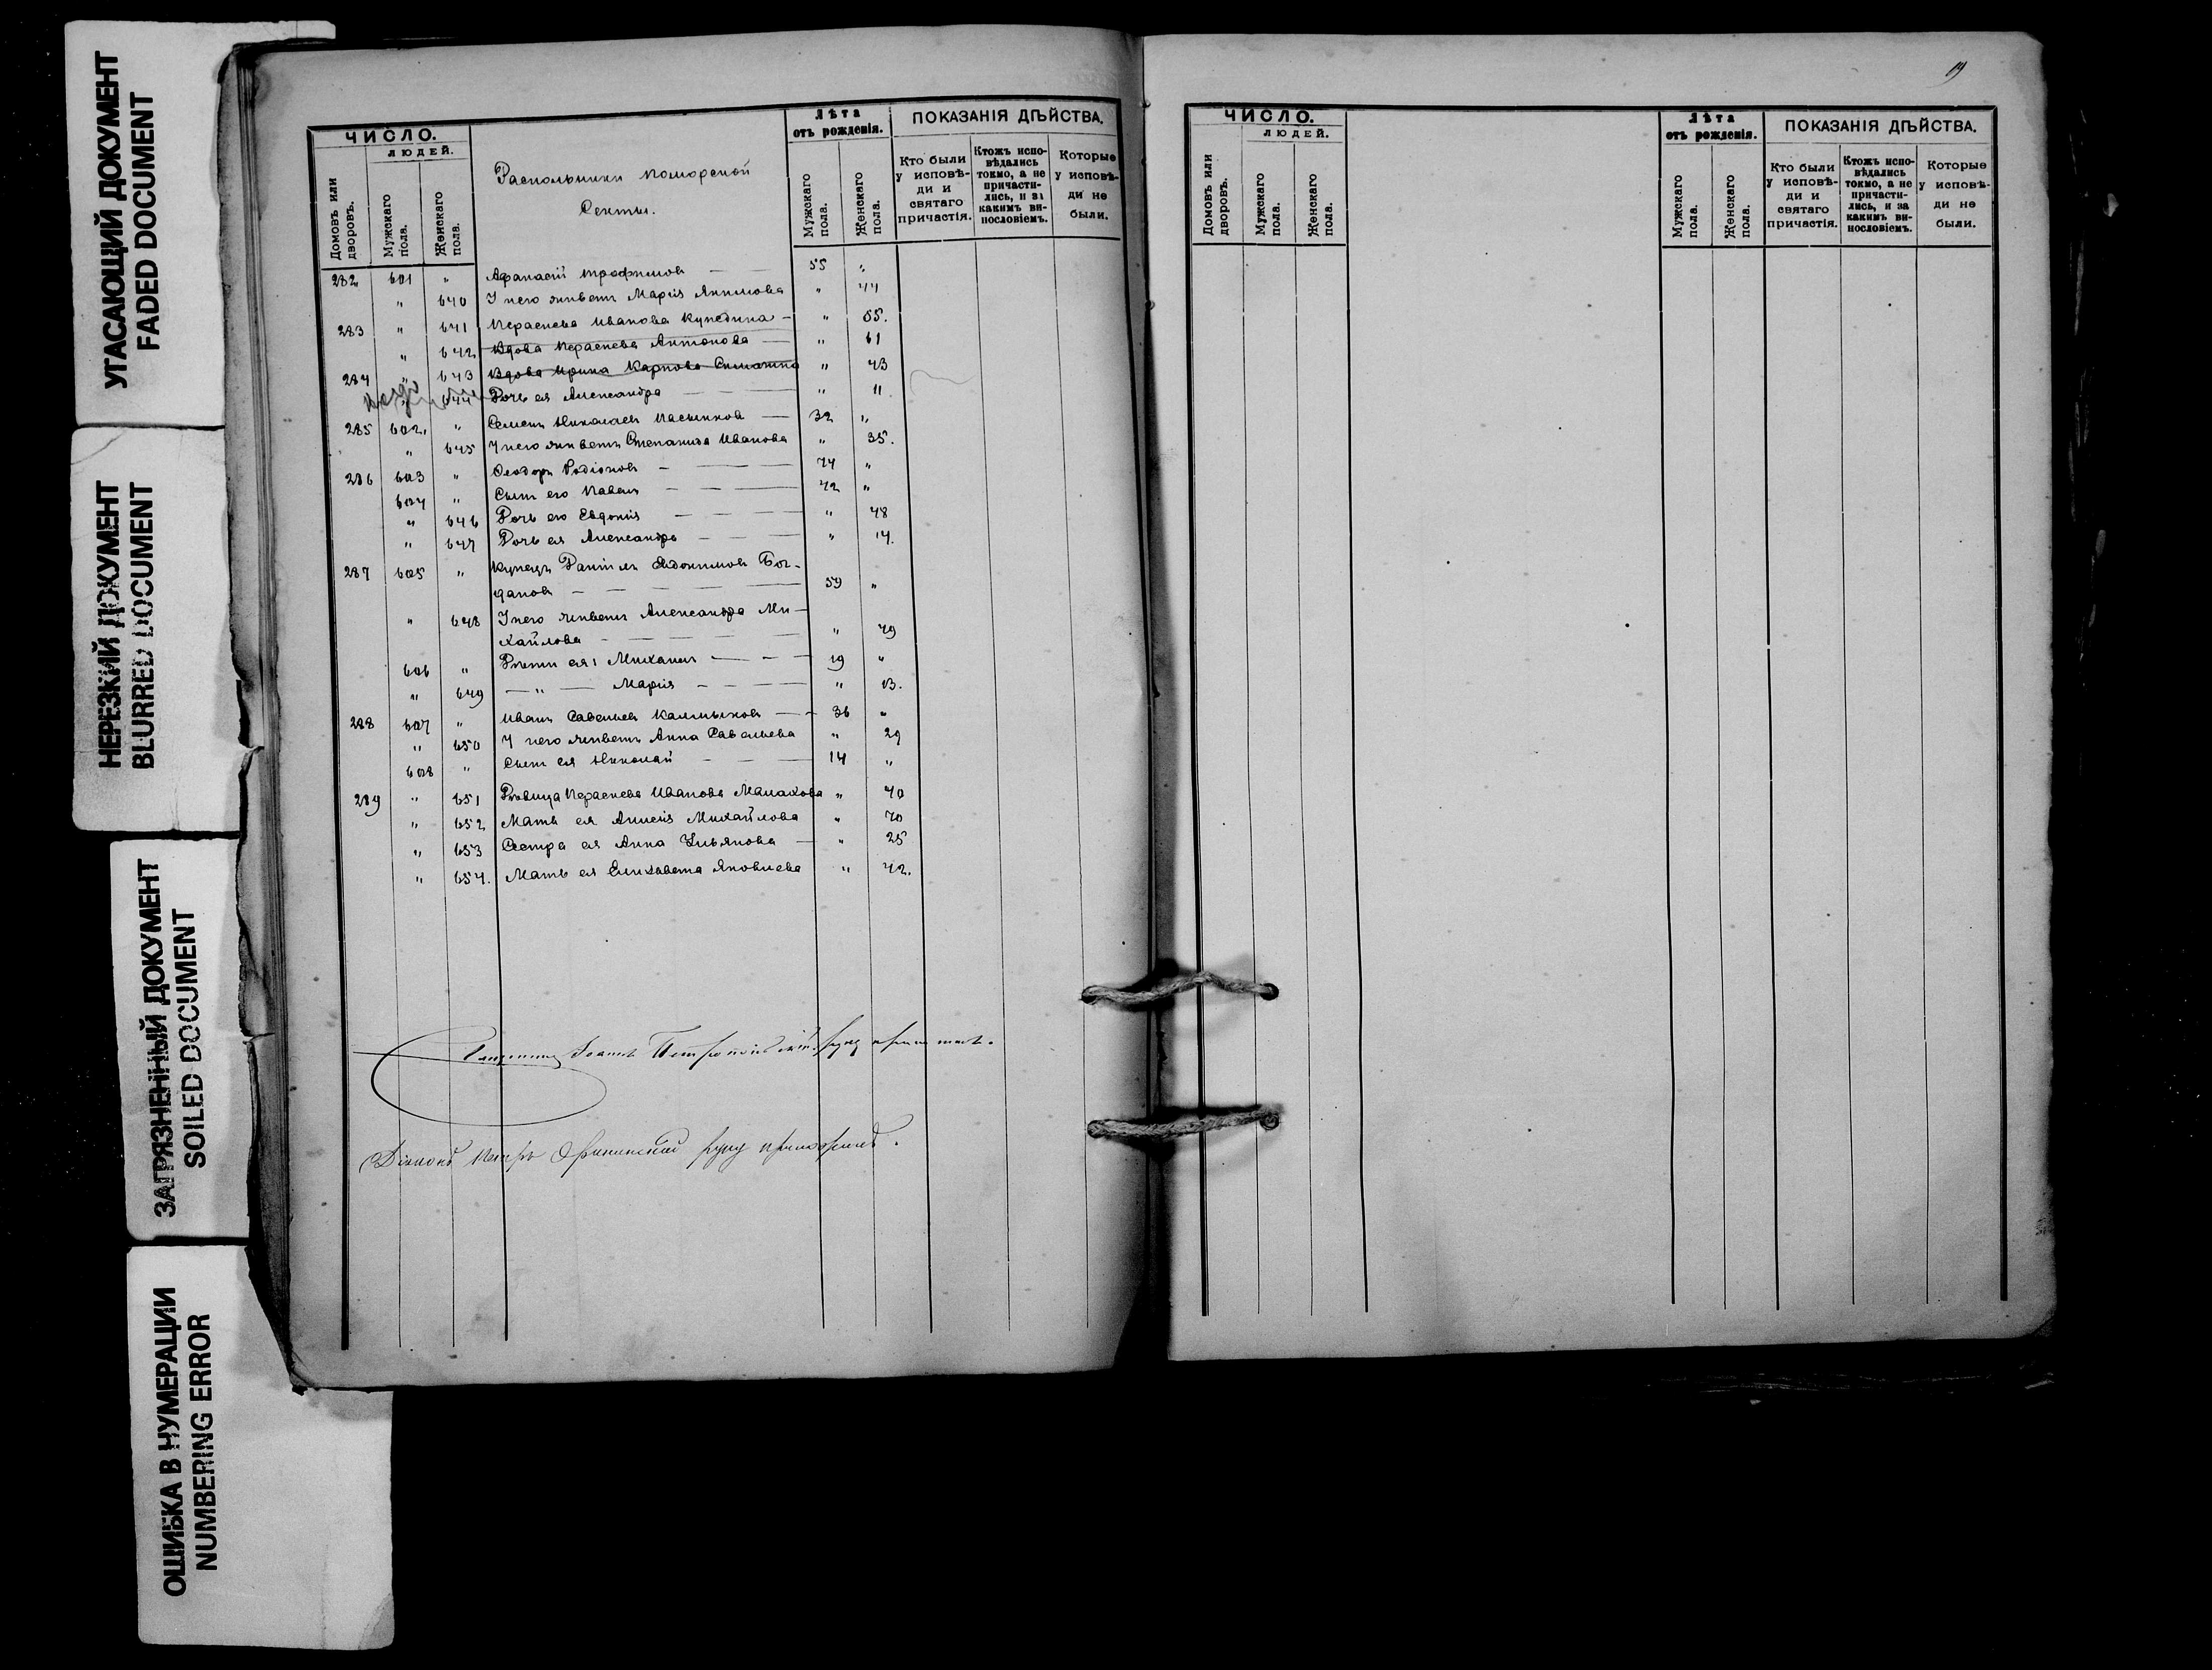 УГАСАЮЩИЙ ДОКУМЕНТ
FADED DOCUMENT
НЕРЕЗКИЙ ДОКУМЕНТ
BLURRED DOCUMENT
ЗАГРЯЗНЕННЫЙ ДОКУМЕНТ
SOILED DOCUMENT
ОШИБКА В НУМЕРАЦИИ
NUMBERING ERROR
ЧИСЛО.
ЛЮДЕЙ.
Домовъ или дворовъ.
Мужскаго пола.
Женскаго пола.
Раскольники поморской
секты.
Лѣта
отъ рожденія.
Мужскаго пола.
Женскаго пола.
ПОКАЗАНІЯ ДѢЙСТВА.
Кто были у исповѣ-ди и святаго причастія.
Ктожъ испо-вѣдались токмо, а не причасти-лись, и за какимъ ви-нословіемъ.
Которые у исповѣ-ди не были.
282 601 " Афанасій Трофимовъ — 55 "
" 640 У него живетъ Марія Якимова " 44
283 " 641 Параскева Иванова — " 55.
" 642 Вдова Параскева Антонова — " 61
284 " 643 Вдова Ирина Карпова " 43
" 644 Дочь ея Александра — " 11
285 602 " Семенъ Николаевъ — 32 "
" 645 У него живетъ Степанида Иванова " 35.
286 603 " Ѳеодоръ Родіоновъ — 74 "
604 " Сынъ его Павелъ — 42 "
" 646 Дочь его Евдокія — " 48
" 647 Дочь ея Александра — " 14.
287 605 " Купецъ Даніилъ Евдокимовъ Бог-
дановъ — 59 "
" 648 У него живетъ Александра Ми-
хайлова — " 49
606 " Дѣти ея: Михаилъ — 19 "
" 649 — " — Марія — " 13.
288 607 " Иванъ Савельевъ Калмыковъ — 36 "
" 650 У него живетъ Анна Савельева " 29
608 " Сынъ ея Николай — 14 "
289 " 651 Дѣвица Параскева Иванова Малахова " 40
" 652 Мать ея Анисія Михайлова " 70
" 653 Сестра ея Анна Ульянова — " 25
" 654. Мать ея Елизавета Яковлева " 42.
Священникъ Іоаннъ руку приложилъ.
Діаконъ Петръ руку приложилъ.
19
ЧИСЛО.
ЛЮДЕЙ.
Домовъ или дворовъ.
Мужскаго пола.
Женскаго пола.
Лѣта
отъ рожденія.
Мужскаго пола.
Женскаго пола.
ПОКАЗАНІЯ ДѢЙСТВА.
Кто были у исповѣ-ди и святаго причастія.
Ктожъ испо-вѣдались токмо, а не причасти-лись, и за какимъ ви-нословіемъ.
Которые у исповѣ-ди не были.